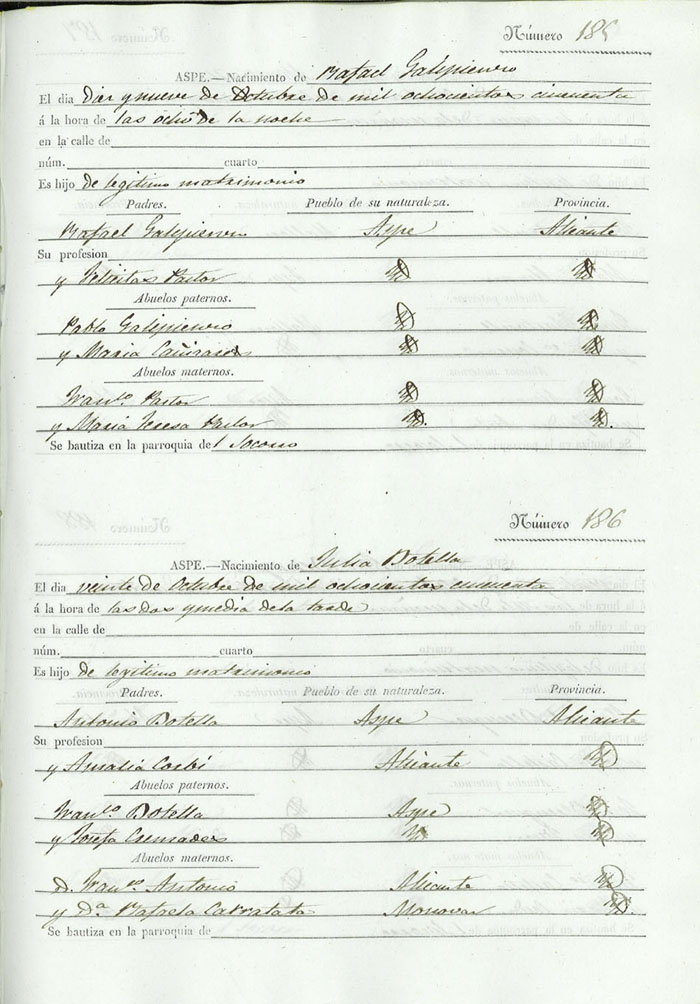 Número 185
ASPE.—Nacimiento de Rafael Galipienso
El dia diez y nueve de Octubre de mil ochocientos cincuenta
á la hora de las ocho de la noche
en la calle de
núm. cuarto
Es hijo de legitimo matrimonio
Padres. Pueblo de su naturaleza. Provincia.
Rafael Galipienso Aspe Alicante
Su profesion
y Felicitas Pastor Yd. Yd.
Abuelos paternos.
Pablo Galipienso Yd. Yd.
y Maria Cañizares Yd. Yd.
Abuelos maternos.
Franco. Pastor Yd. Yd.
y Maria Teresa Pastor Yd. Yd.
Se bautiza en la parroquia del Socorro
Número 186
ASPE.—Nacimiento de Julia Botella
El dia veinte de Octubre de mil ochocientos cincuenta
á la hora de las dos y media de la tarde
en la calle de
núm. cuarto
Es hijo de legitimo matrimonio
Padres. Pueblo de su naturaleza. Provincia.
Antonio Botella Aspe Alicante
Su profesion
y Amalia Corbí Alicante Yd.
Abuelos paternos.
Franco. Botella Aspe Yd.
y Josefa Cremades Yd. Yd.
Abuelos maternos.
D. Franco. Antonio Alicante Yd.
y Da. Rafaela Carratala Monovar Yd.
Se bautiza en la parroquia de